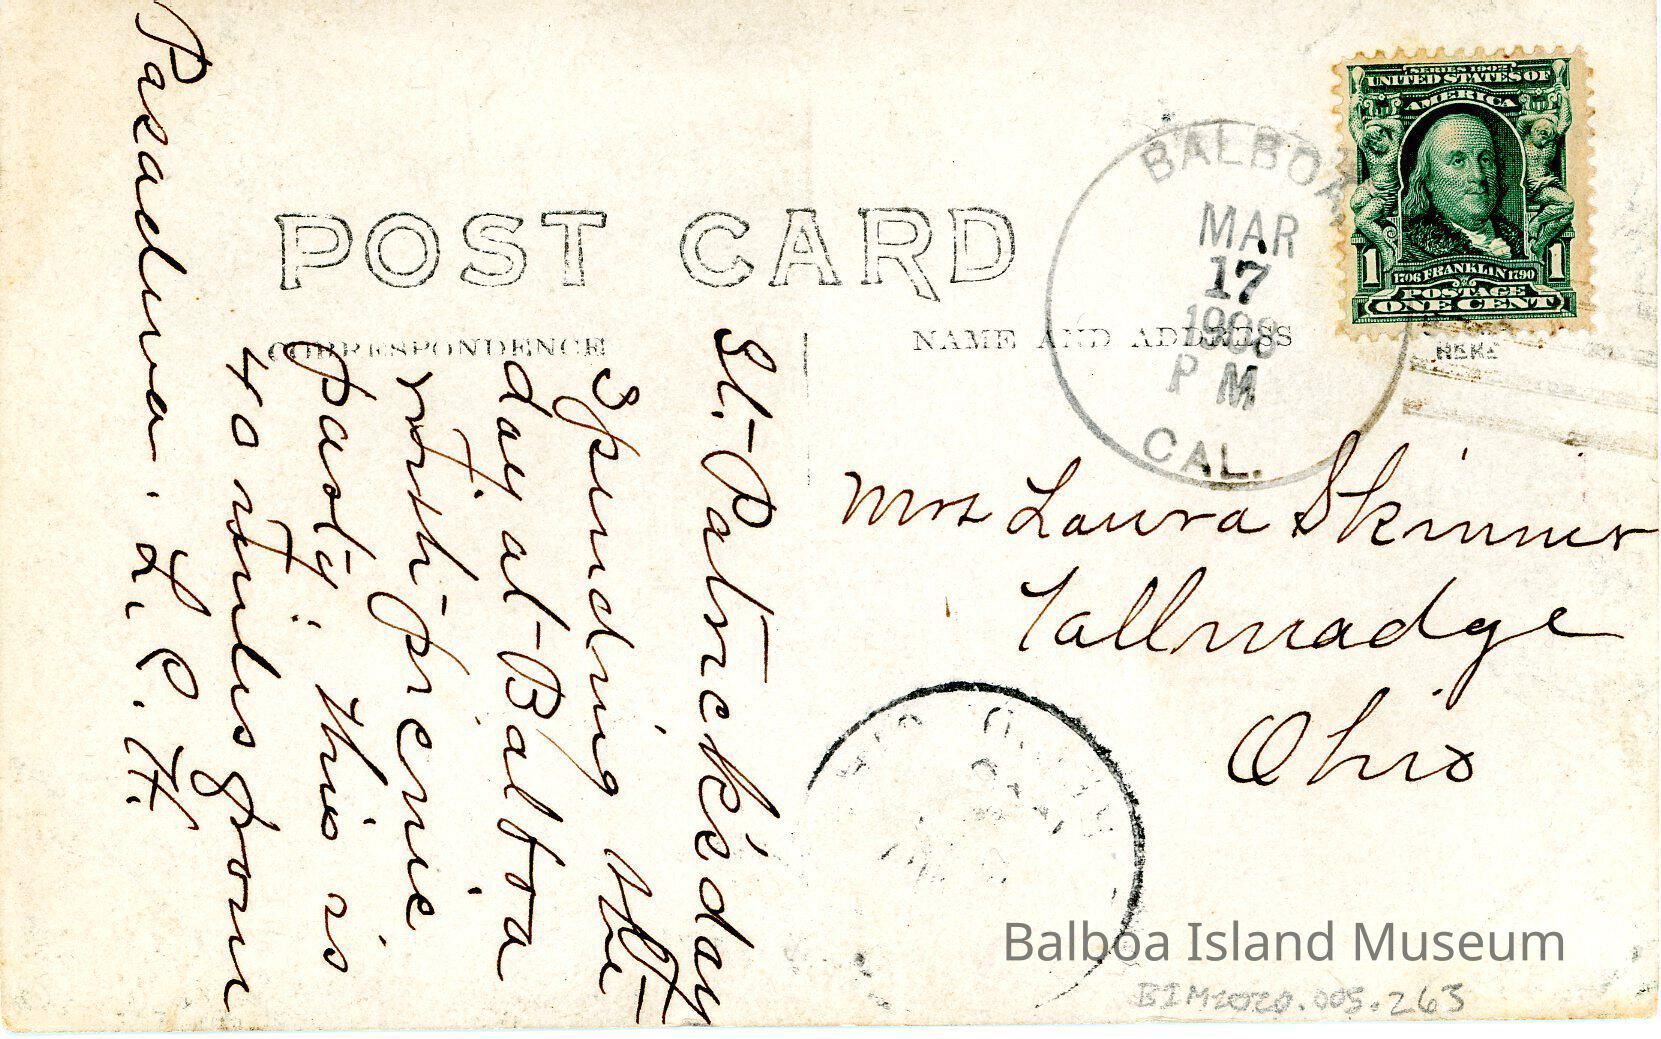 POST CARD
CORRESPONDENCE
NAME AND ADDRESS
BALBOA
MAR
17
1908
P M
CAL.
SERIES 1902
UNITED STATES OF
AMERICA
1 1
1706 FRANKLIN 1790
POSTAGE
ONE CENT
HERE
St. Patrick's day
Spending the
day at Balboa
with picnic
party. this is
40 miles from
Pasadena. L. P. H.
Mrs Laura Skinner
Tallmadge
Ohio
Balboa Island Museum
BIM2020.005.263